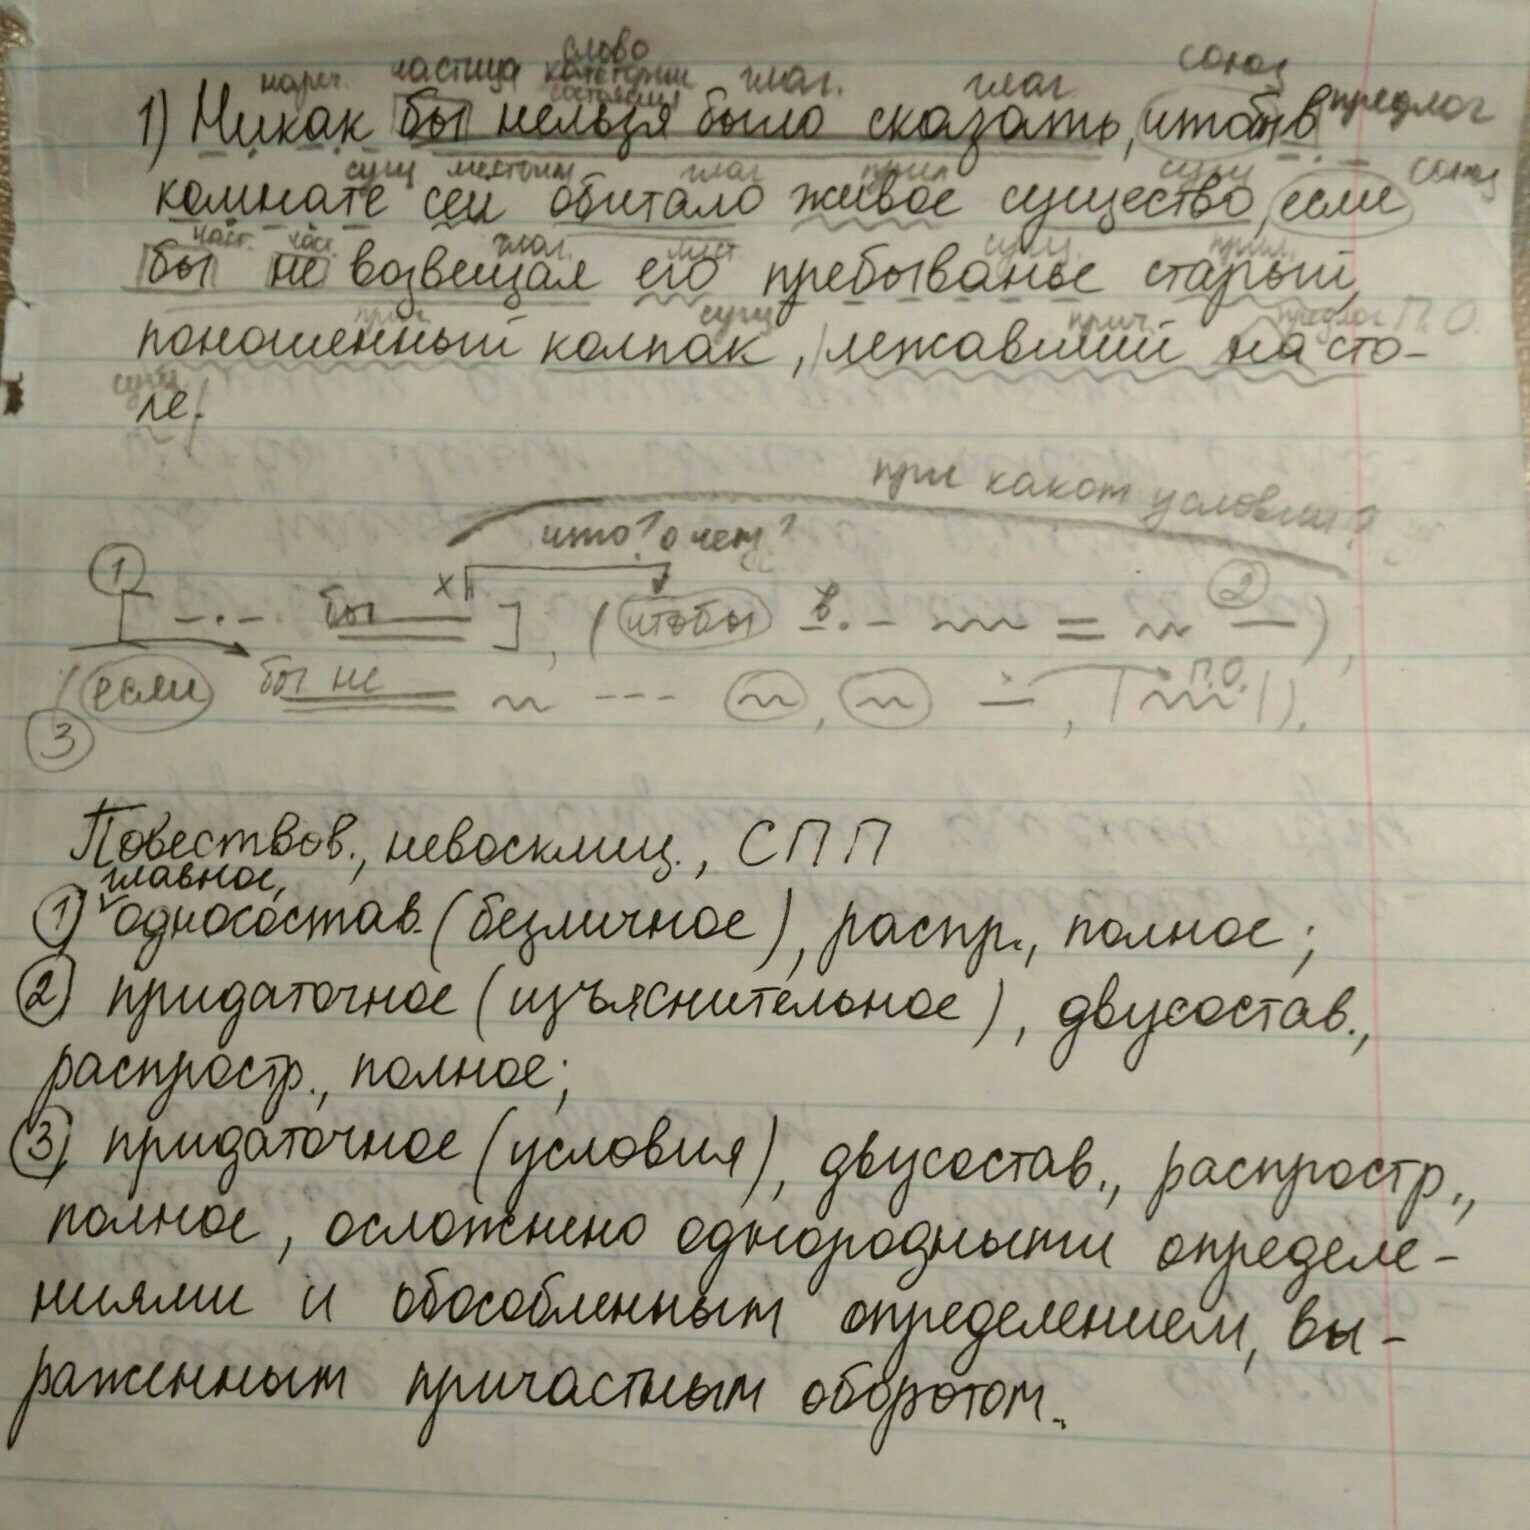 слово
нареч. частица категории глаг. глаг союз
состояния
1) Никак бы нельзя было сказать, чтобы в предлог
сущ местоим глаг прил сущ союз
комнате сей обитало живое существо, если
част. час. глаг. мест сущ. прил.
бы не возвещал его пребыванье старый,
прил сущ прич. предлог П.О.
поношенный колпак, лежавший на сто-
сущ
ле.
при каком условии?
что? о чём?
1 х 2
[ бы ], ( чтобы в ),
( если бы не , , | П.О. | ).
3
Повествов., невосклиц., СПП
главное,
1) односостав. (безличное), распр., полное;
2) придаточное (изъяснительное), двусостав.,
распростр., полное;
3) придаточное (условия), двусостав., распростр.,
полное, осложнено однородными определе-
ниями и обособленным определением, вы-
раженным причастным оборотом.